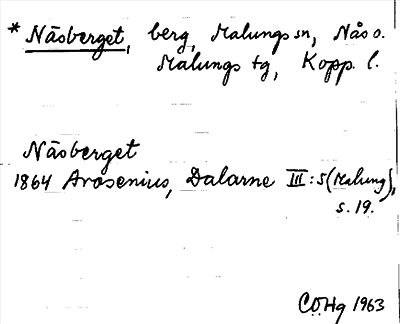 * Näsberget, berg, Malungs sn, Nås o.
Malungs tg, Kopp. l.
Näsberget
1864 Arosenius, Dalarne III: 5 (Malung),
s. 19.
CÖHg 1963